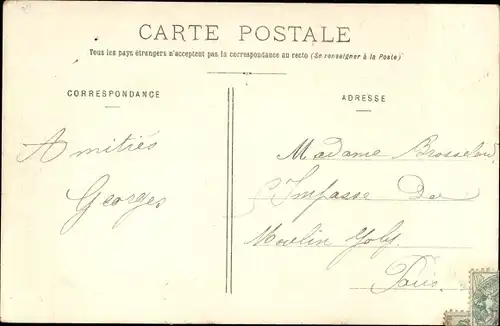 CARTE POSTALE
Tous les pays étrangers n'acceptent pas la correspondance au recto (Se renseigner à la Poste)
CORRESPONDANCE
ADRESSE
Amitiés
Georges
Madame
Impasse Du
Moulin Joly
Paris.